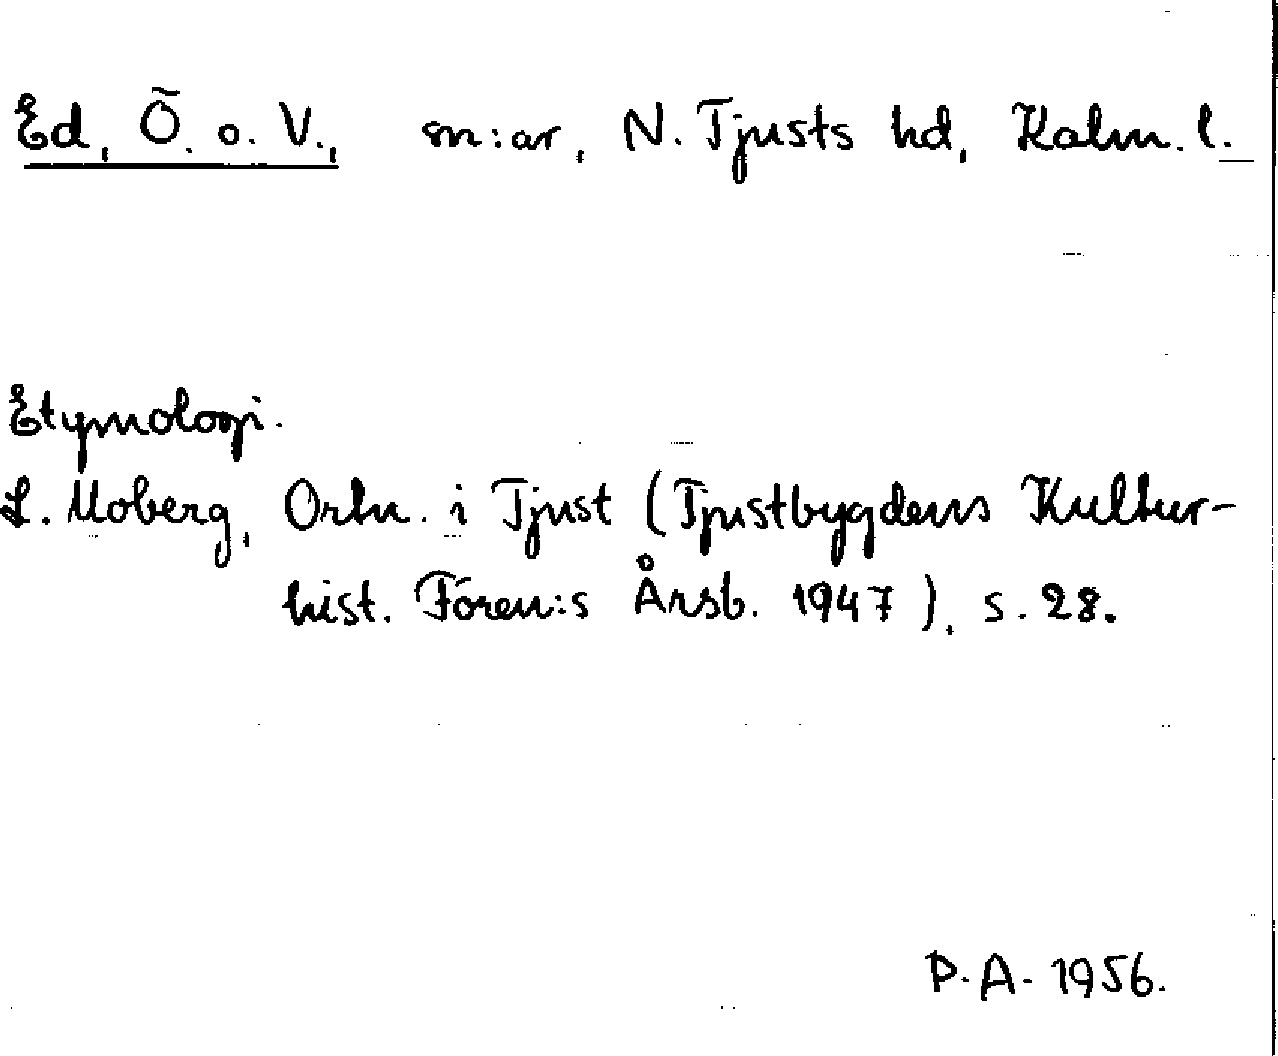 Ed, Ö. o. V., sn:ar, N. Tjusts hd, Kalm. l.
Etymologi.
L. Moberg, Ortn. i Tjust (Tjustbygdens Kultur-
hist. Fören:s Årsb. 1947), s. 28.
P.A. 1956.